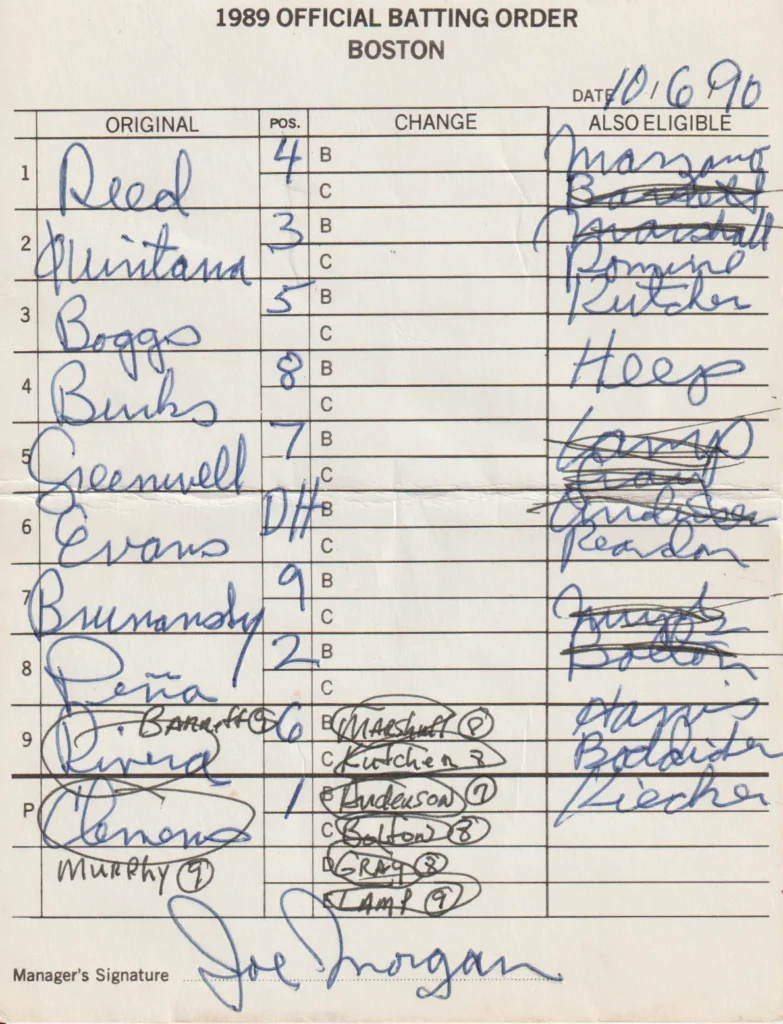 1989 OFFICIAL BATTING ORDER
BOSTON
DATE 10/6/90
ORIGINAL POS. CHANGE ALSO ELIGIBLE
1 Reed 4 B Marzano
C Barrett
2 Quintana 3 B Marshall
C Romine
3 Boggs 5 B Kutcher
C
4 Burks 8 B Heep
C
5 Greenwell 7 B Lamp
C Gray
6 Evans DH B Anderson
C Reardon
7 Brunansky 9 B Murphy
C Bolton
8 Peña 2 B
C Harris
9 Rivera Barrett 9 6 B Marshall 8 Boddicker
C Kutcher 8 Kiecker
P Clemens 1 B Anderson 7
C Bolton 8
Murphy 9 D Gray 8
E Lamp 9
Manager's Signature Joe Morgan